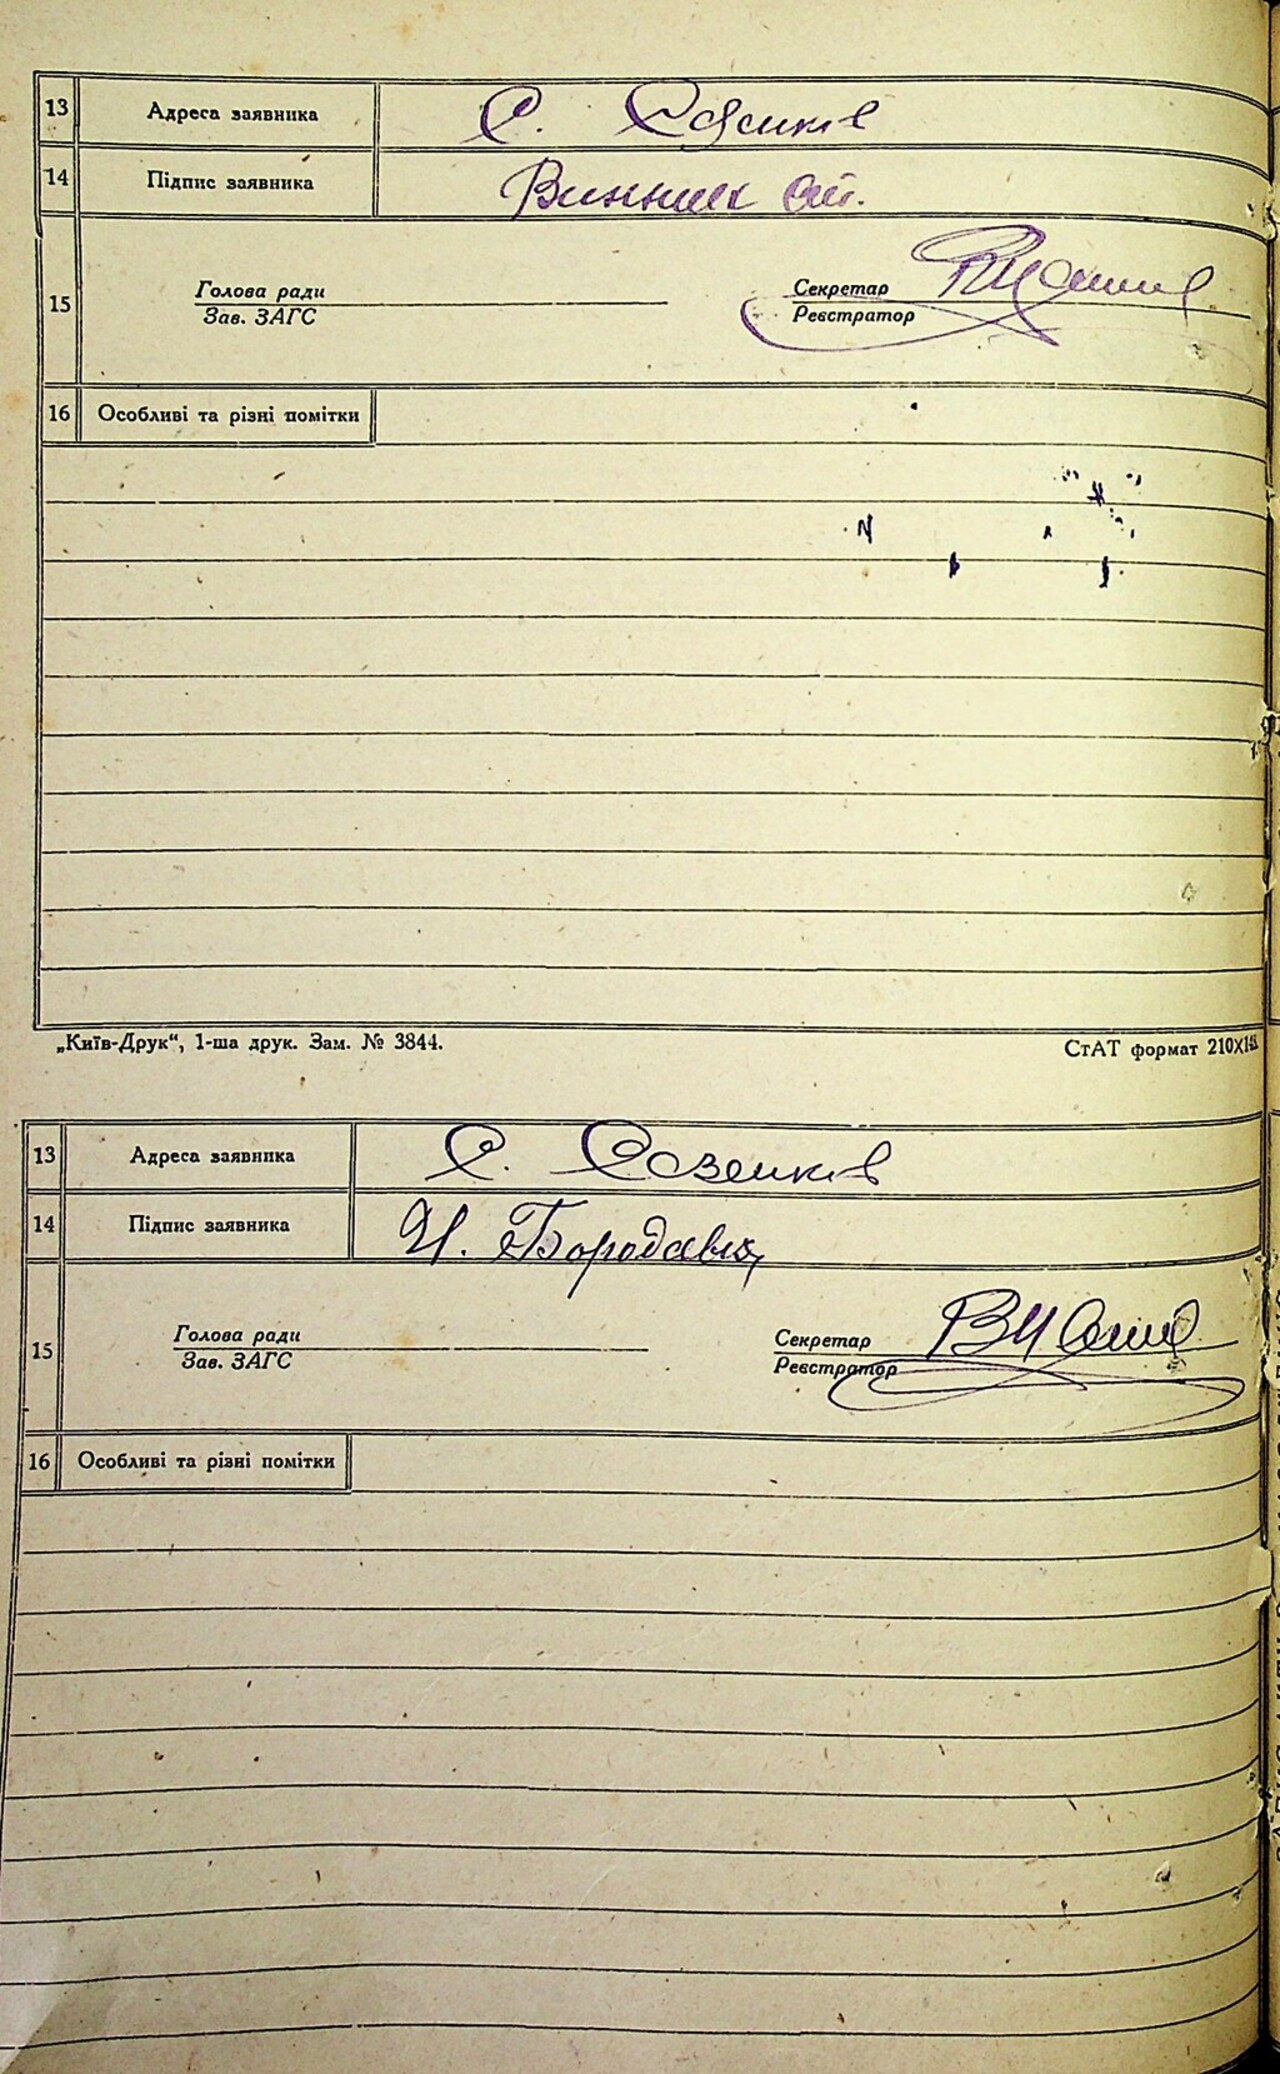 13 Адреса заявника С. Созенків
14 Підпис заявника Винник
15 Голова ради Секретар
Зав. ЗАГС Реєстратор
16 Особливі та різні помітки
„Київ-Друк“, 1-ша друк. Зам. № 3844. СтАТ формат
13 Адреса заявника С. Созенків
14 Підпис заявника И. Бородавка
15 Голова ради Секретар
Зав. ЗАГС Реєстратор
16 Особливі та різні помітки